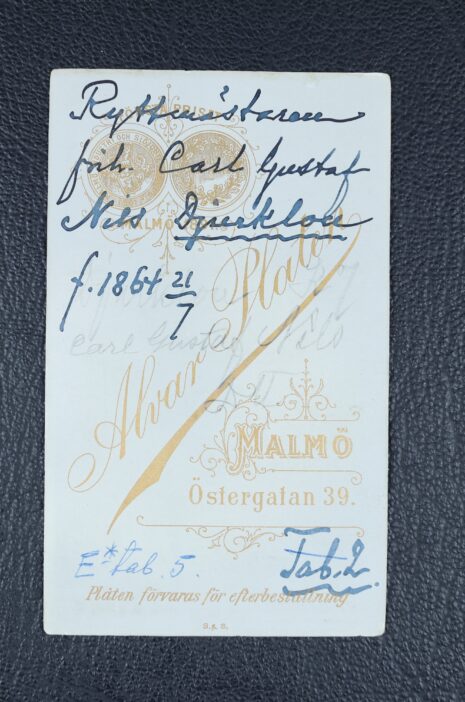 Ryttmästaren
frih. Carl Gustaf
Nils Djurklou
f. 1864 21/7
MALMÖ
Carl Gustaf Nils
Alvar Platin
MALMÖ
Östergatan 39.
E* tab. 5.
Tab. 2.
Plåten förvaras för efterbeställning
S. & S.